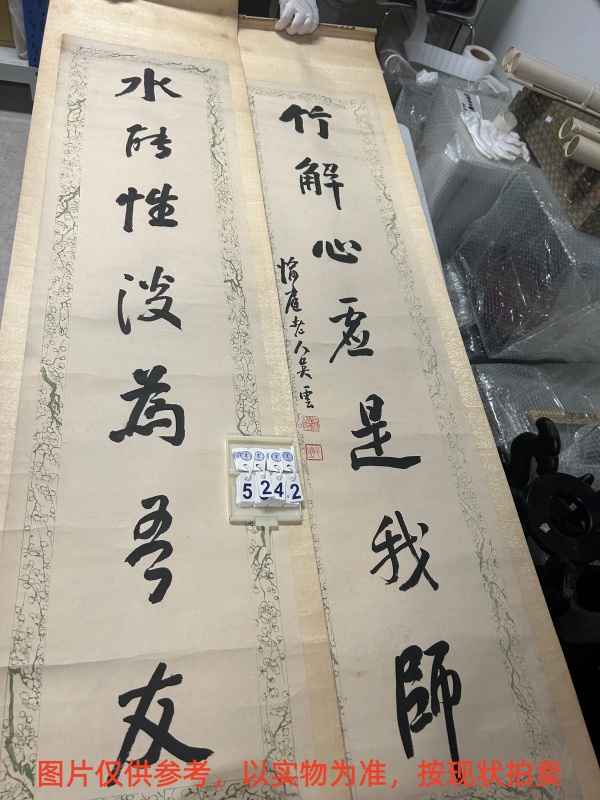 水能性淡為吾友
竹解心虛是我師
愉庭老人吳雲
5242
图片仅供参考，以实物为准，按现状拍卖